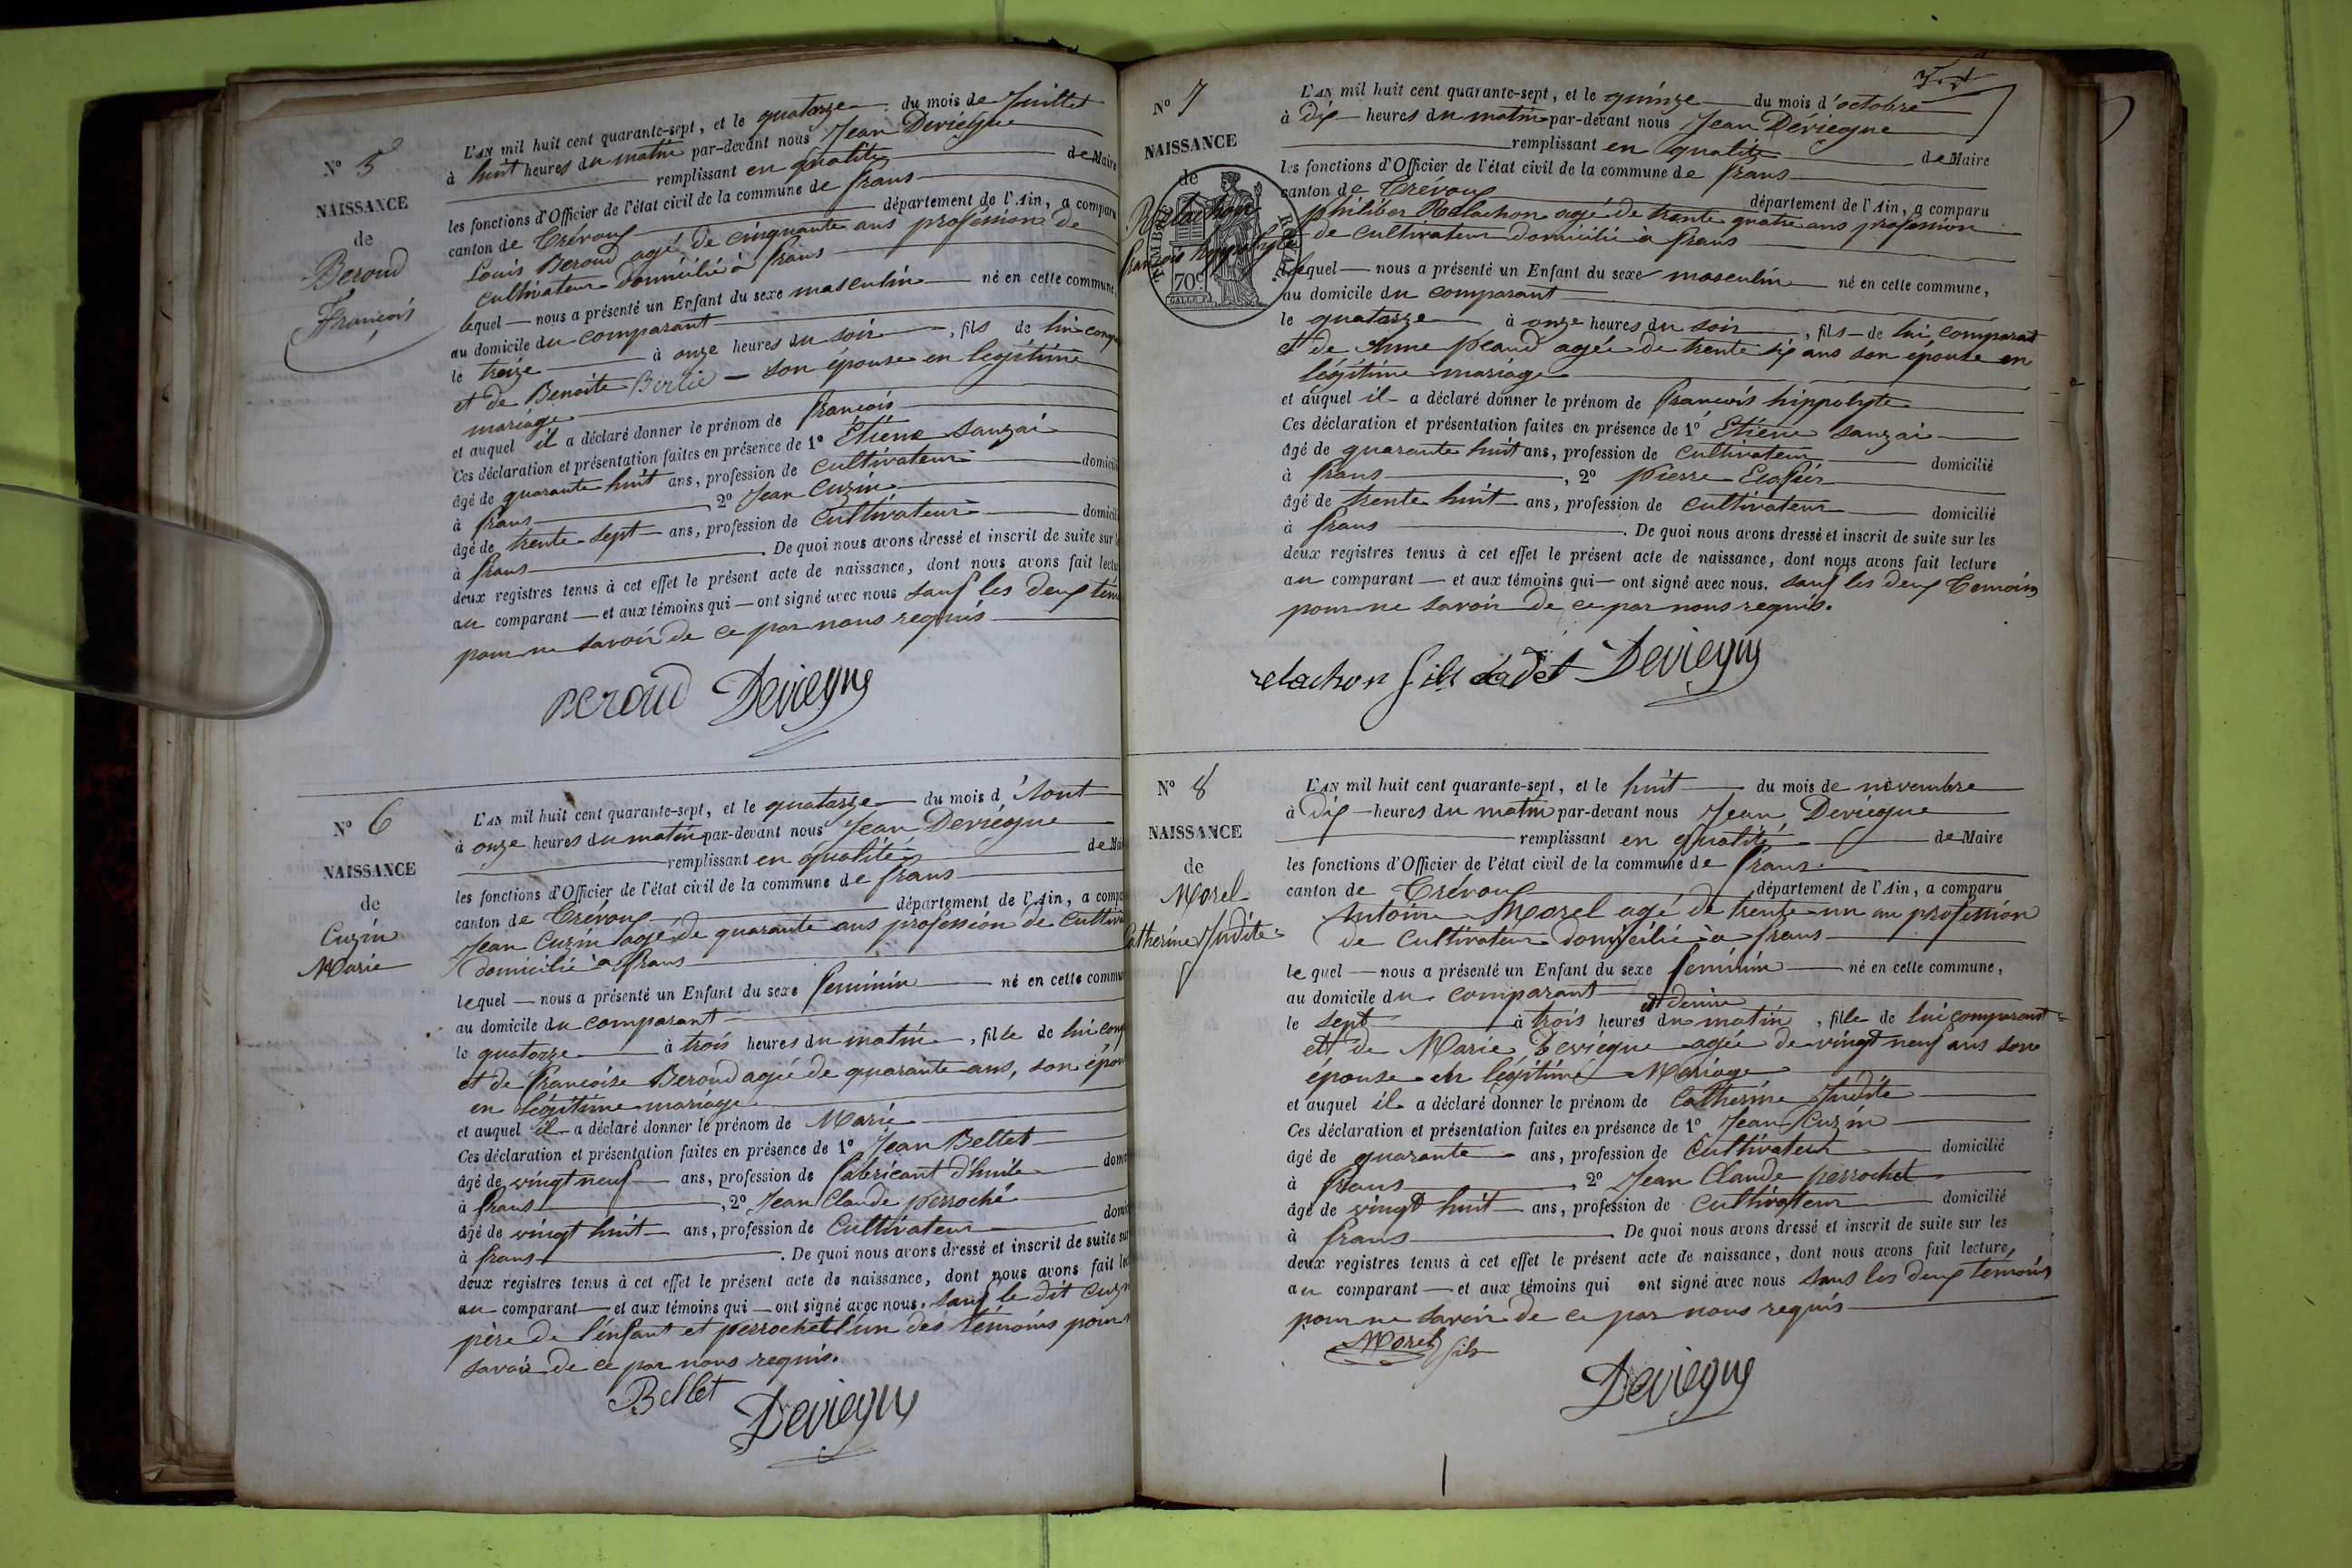 N° 5
NAISSANCE
de
Beroud
François
L'AN mil huit cent quarante-sept, et le quatorze du mois de Juillet
à huit heures du matin par-devant nous Jean Deviegne
remplissant en qualité de Maire
les fonctions d'Officier de l'état civil de la commune de frans
canton de Trévoux département de l'Ain, a comparu
Louis Beroud agé de cinquante ans profession de
cultivateur domicilié à frans
lequel nous a présenté un Enfant du sexe masculin né en cette commune,
au domicile du comparant
le treize à onze heures du soir, fils de lui comp
et de Benoite son épouse en legitime
mariage
et auquel il a déclaré donner le prénom de françois
Ces déclaration et présentation faites en présence de 1° Etiene Sanzai
âgé de quarante huit ans, profession de cultivateur domicilié
à frans, 2° Jean Cuzin
âgé de trente sept ans, profession de cultivateur domicili
à frans. De quoi nous avons dressé et inscrit de suite sur l
deux registres tenus à cet effet le présent acte de naissance, dont nous avons fait lectu
au comparant et aux témoins qui ont signé avec nous sauf les deux tém
pour ne savoir de ce par nous requis
Beroud Deviegne
N° 6
NAISSANCE
de
Cuzin
Marie
L'AN mil huit cent quarante-sept, et le quatorze du mois d'Aout
à onze heures du matin par-devant nous Jean Deviegne
remplissant en qualité de Mai
les fonctions d'Officier de l'état civil de la commune de frans
canton de Trévoux département de l'Ain, a compa
Jean Cuzin agé de quarante ans profession de cultiva
domicilié à frans
lequel nous a présenté un Enfant du sexe feminin né en cette commu
au domicile du comparant
le quatorze à trois heures du matin, fille de lui comp
et de françoise Beroud agée de quarante ans, son épou
en légitime mariage
et auquel il a déclaré donner le prénom de Marie
Ces déclaration et présentation faites en présence de 1° Jean Bellet
âgé de vingt neuf ans, profession de fabricant d'huile domi
à frans, 2° Jean Claude perroché
âgé de vingt huit ans, profession de Cultivateur domi
à frans. De quoi nous avons dressé et inscrit de suite sur
deux registres tenus à cet effet le présent acte de naissance, dont nous avons fait lec
au comparant et aux témoins qui ont signé avec nous. sauf le dit Cuzin
père de l'enfant et perrochet l'un des témoins pour n
savoir de ce par nous requis.
Bellet
Deviegne
N° 7
NAISSANCE
de
Relachon
francois hyppolyte
TIMBRE ROYAL
70c
L'AN mil huit cent quarante-sept, et le quinze du mois d'octobre
à dix heures du matin par-devant nous Jean Déviegne
remplissant en qualité de Maire
les fonctions d'Officier de l'état civil de la commune de frans
canton de Trévoux département de l'Ain, a comparu
philiber Relachon agé de trente quatre ans profession
de cultivateur domicilié à frans
lequel nous a présenté un Enfant du sexe masculin né en cette commune,
au domicile du comparant
le quatorze à onze heures du soir, fils de lui comparant
et de Anne peaud agée de trente six ans son épouse en
légitime mariage
et auquel il a déclaré donner le prénom de françois hippolyte
Ces déclaration et présentation faites en présence de 1° Etiene Sanzai
âgé de quarante huit ans, profession de cultivateur domicilié
à frans, 2° pierre
âgé de trente huit ans, profession de cultivateur domicilié
à frans. De quoi nous avons dressé et inscrit de suite sur les
deux registres tenus à cet effet le présent acte de naissance, dont nous avons fait lecture
au comparant et aux témoins qui ont signé avec nous. sauf les deux Temoins
pour ne savoir de ce par nous requis.
relachon fils cadet Deviegne
N° 8
NAISSANCE
de
Morel
Catherine Judite
L'AN mil huit cent quarante-sept, et le huit du mois de novembre
à dix heures du matin par-devant nous Jean Deviegne
remplissant en qualité de Maire
les fonctions d'Officier de l'état civil de la commune de frans
canton de Trévoux département de l'Ain, a comparu
Antoine Morel agé de trente un an profession
de cultivateur domicilié à frans
lequel nous a présenté un Enfant du sexe feminin né en cette commune,
au domicile du comparant
le sept à trois heures et demie du matin, fille de lui comparant
et de Marie Deviegne agée de vingt neuf ans son
épouse en légitime Mariage
et auquel il a déclaré donner le prénom de Catherine Judite
Ces déclaration et présentation faites en présence de 1° Jean Cuzin
âgé de quarante ans, profession de Cultivateur domicilié
à frans, 2° Jean Claude perrochet
âgé de vingt huit ans, profession de cultivateur domicilié
à frans. De quoi nous avons dressé et inscrit de suite sur les
deux registres tenus à cet effet le présent acte de naissance, dont nous avons fait lecture,
au comparant et aux témoins qui ont signé avec nous sauf les deux témoins
pour ne savoir de ce par nous requis
Morel fils
Deviegne